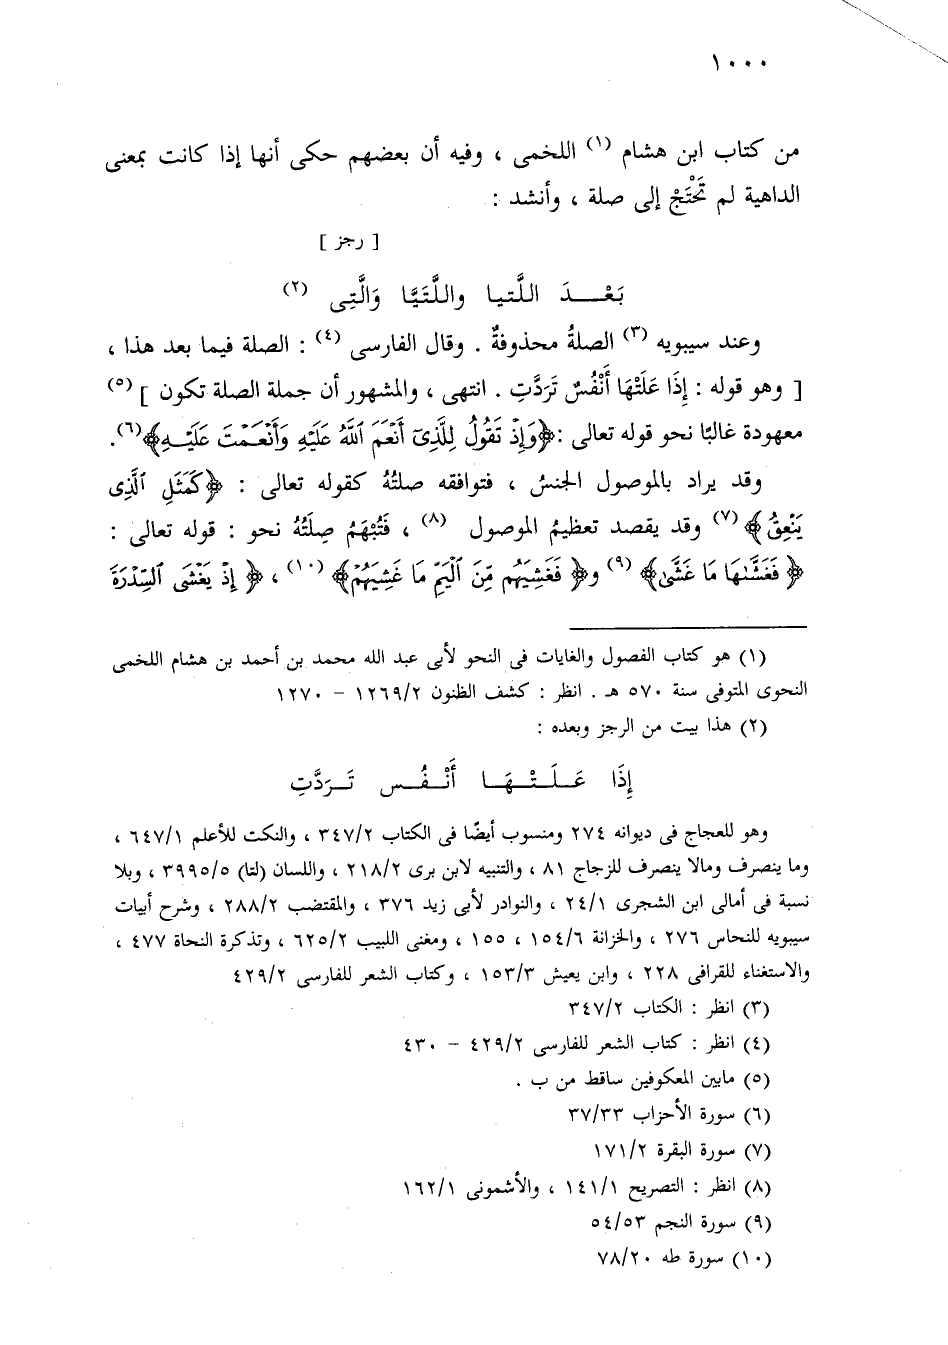 ١٠٠٠
من كتاب ابن هشام (١) اللخمى ، وفيه أن بعضهم حكى أنها إذا كانت بمعنى
الداهية لم تَحْتَجْ إلى صلة ، وأنشد :
[ رجز ]
بَعْـــدَ اللَّتيا واللَّتَيَّا وَالَّتِى (٢)
وعند سيبويه (٣) الصلةُ محذوفةٌ . وقال الفارسى (٤) : الصلة فيما بعد هذا ،
[ وهو قوله : إِذَا عَلَتْهَا أَنْفُسٌ تَرَدَّتِ . انتهى ، والمشهور أن جملة الصلة تكون ] (٥)
معهودة غالبًا نحو قوله تعالى : ﴿وَإِذْ تَقُولُ لِلَّذِىٓ أَنْعَمَ ٱللَّهُ عَلَيْهِ وَأَنْعَمْتَ عَلَيْهِ﴾ (٦).
وقد يراد بالموصول الجنسُ ، فتوافقه صلتُهُ كقوله تعالى : ﴿كَمَثَلِ ٱلَّذِى
يَنْعِقُ﴾ (٧) وقد يقصد تعظيمُ الموصول (٨) ، فَتُبْهَمُ صِلَتُهُ نحو : قوله تعالى :
﴿ فَغَشَّىٰهَا مَا غَشَّىٰ﴾ (٩) و﴿ فَغَشِيَهُم مِّنَ ٱلْيَمِّ مَا غَشِيَهُمْ﴾ (١٠) ، ﴿ إِذْ يَغْشَى ٱلسِّدْرَةَ
(١) هو كتاب الفصول والغايات فى النحو لأبى عبد الله محمد بن أحمد بن هشام اللخمى
النحوى المتوفى سنة ٥٧٠ هـ . انظر : كشف الظنون ١٢٦٩/٢ – ١٢٧٠
(٢) هذا بيت من الرجز وبعده :
إِذَا عَـلَـتْـهَـا أَنْـفُـس تَـرَدَّتِ
وهو للعجاج فى ديوانه ٢٧٤ ومنسوب أيضًا فى الكتاب ٣٤٧/٢ ، والنكت للأعلم ٦٤٧/١ ،
وما ينصرف ومالا ينصرف للزجاج ٨١ ، والتنبيه لابن برى ٢١٨/٢ ، واللسان (لتا) ٣٩٩٥/٥ ، وبلا
نسبة فى أمالى ابن الشجرى ٢٤/١ ، والنوادر لأبى زيد ٣٧٦ ، والمقتضب ٢٨٨/٢ ، وشرح أبيات
سيبويه للنحاس ٢٧٦ ، والخزانة ١٥٤/٦ ، ١٥٥ ، ومغنى اللبيب ٦٢٥/٢ ، وتذكرة النحاة ٤٧٧ ،
والاستغناء للقرافى ٢٢٨ ، وابن يعيش ١٥٣/٣ ، وكتاب الشعر للفارسى ٤٢٩/٢
(٣) انظر : الكتاب ٣٤٧/٢
(٤) انظر : كتاب الشعر للفارسى ٤٢٩/٢ – ٤٣٠
(٥) مابين المعكوفين ساقط من ب .
(٦) سورة الأحزاب ٣٧/٣٣
(٧) سورة البقرة ١٧١/٢
(٨) انظر : التصريح ١٤١/١ ، والأشمونى ١٦٢/١
(٩) سورة النجم ٥٤/٥٣
(١٠) سورة طه ٧٨/٢٠